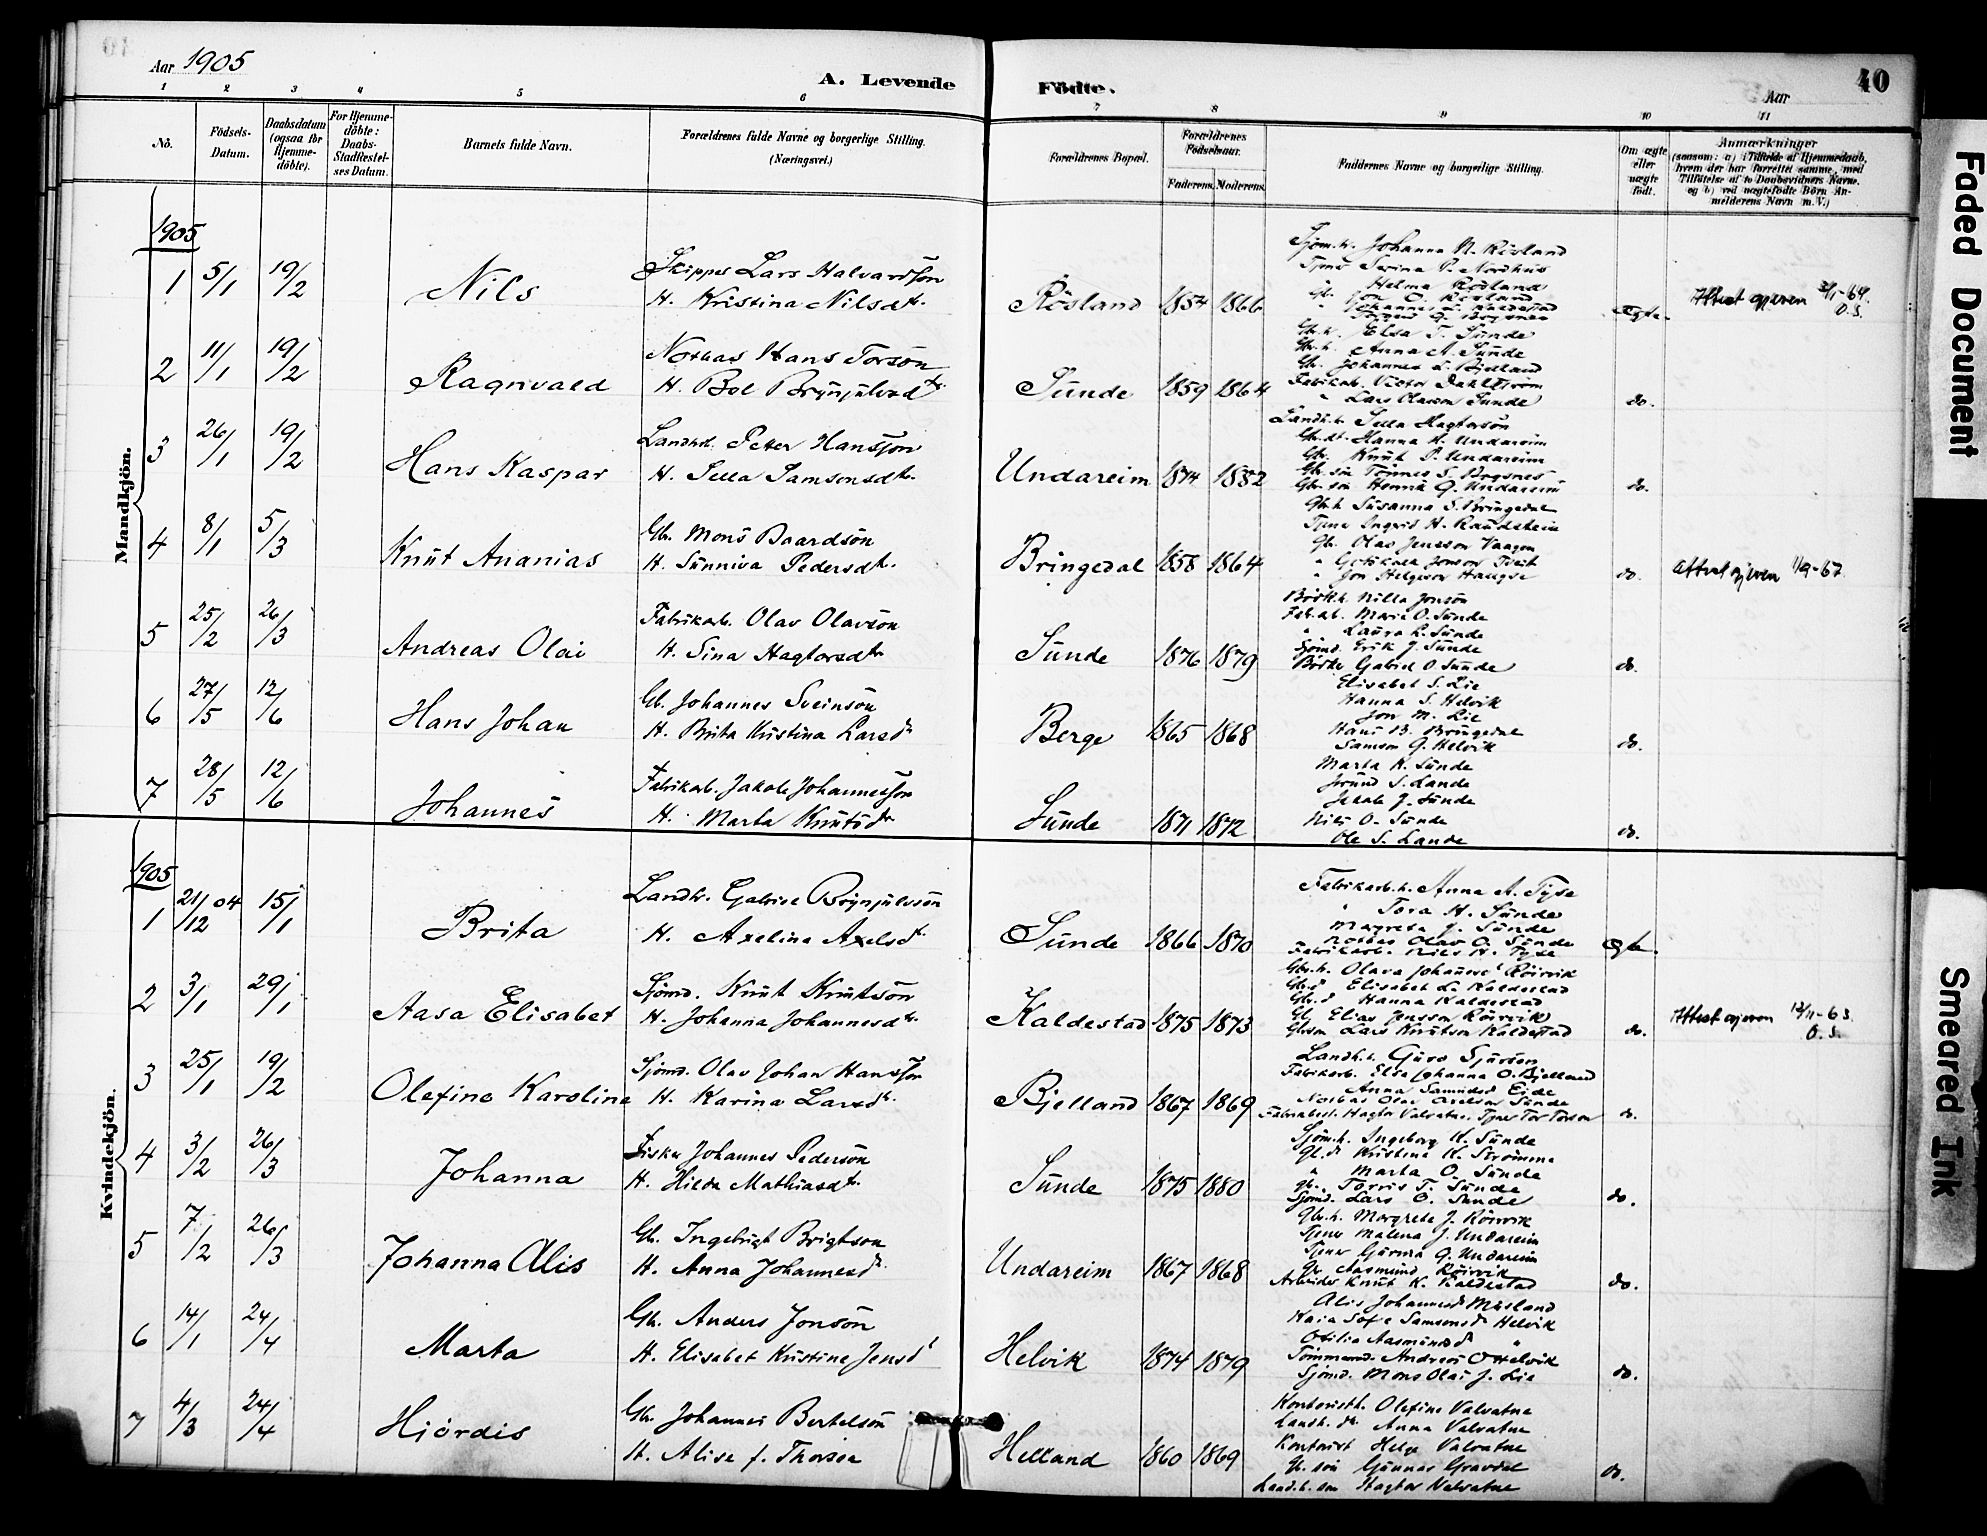 Aar 1905
A. Levende
Födte.
Aar
40
1 2 3 4 5 6 7 8 9 10 11
No.
Födsels-
Datum.
Daabsdatum
(ogsaa for
Hjemme-
döbte).
For Hjemme-
döbte:
Daabs-
Stadfestel-
ses Datum.
Barnets fulde Navn.
Forældrenes fulde Navne og borgerlige Stilling.
(Næringsvei.)
Forældrenes Bopæl.
Forældrenes
Födselsaar.
Faderens. Moderens.
Faddernes Navne og borgerlige Stilling.
Om ægte
eller
uægte
födt.
Anmærkninger
(saasom: a) i Tilfælde af Hjemmedaab,
hvem der har forrettet samme, med
Tilföielse af to Daabsvidners Navne,
og b) ved uægtefödte Börn An-
melderens Navn m.V.)
Mandkjön.
1905
1 5/1 19/2 Nils
Skipper Lars Halvardson
H. Kristina Nilsdtr.
Rösland 1854 1866
Sjöm.h. Johanna N. Rösland
Tjener Serina P. Nordhus
Helma Rösland
Ægte.
Attest gjeven
O.S.
2 11/1 19/2 Ragnvald
Notbas Hans Torson
H. Bol Brynjulvsdtr.
Sunde 1859 1864
Gbr.h. Elsa T. Sunde
Gbr.h. Anna A. Sunde
Gbr. Johannes L. Bjelland
Fabrikarb. Victor Dahlström
" Lars Olavson Sunde
do.
3 26/1 19/2 Hans Kaspar
Landhd. Petter Hansson
H. Sella Samsonsdtr.
Undareim 1874 1882
Landh.h. Sella Hagtorson
Gbr.dt. Hanna K. Undareim
Gbr. Knut P. Undareim
Gbr. sön Tönnes S. Bogsnes
Gbr. sön Henrik G. Undareim
do.
4 8/1 5/3 Knut Ananias
Gbr. Mons Baardson
H. Sunniva Pedersdtr.
Bringedal 1858 1864
Gbr.h. Susanna S. Bringedal
Tjener Ingrid H. Raudstein
Gbr. Olav Jensson Vaagen
" Jon Helgeson Haugse
do.
Attest gjeven 11/9-67.
5 25/2 26/3 Andreas Olai
Fabrikarb. Olav Olavson
H. Sina Hagtorsdtr.
Sunde 1876 1879
Bödk.h. Nilla Jonson
Fab.arb. Marie O. Sunde
" Laura L. Sunde
Sjömd. Erik J. Sunde
Bödker Gabriel O. Sunde
do.
6 27/5 12/6 Hans Johan
Gb. Johannes Sveinson
H. Brita Kristina Larsdr
Berge 1865 1868
Elisabet S. Lie
Hanna S. Helvik
Jon M. Lie
Hans B. Bringedal
Samson G. Helvik
do.
7 28/5 12/6 Johannes
Fabrikarb. Jakob Johannesson
H. Marta Knutsdr
Sunde 1871 1872
Marta K. Sunde
Jorund S. Lande
Jakob J. Sunde
Nils O. Sunde
Ole S. Lande
do.
Kvindekjön.
1905
1 21/12 04 15/1 Brita
Landh. Gabriel Brynjulvson
H. Axelina Axelsdtr.
Sunde 1866 1870
Fabrikarb.h. Anna A. Tyse
" Tora H. Sunde
Margreta J. Sunde
Notbas Olav O. Sunde
Fabrikarb. Nils H. Tyse
Ægte.
2 3/1 29/1 Aasa Elisabet
Sjömd. Knut Knutson
H. Johanna Johannesdtr.
Kaldestad 1875 1873
Gbr.h. Olava Johannesd Röirvik
Gb.d Elisabet L. Kaldestad
Gbr.d Hanna Kaldestad
Gb. Elias Jensson Röirvik
Gbrsön Lars Knutson Kaldestad
do.
Attest gjeven 12/11-63.
O.S.
3 25/1 19/2 Olefine Karoline
Sjömd. Olav Johan Hansson
H. Karina Larsdtr.
Bjelland 1867 1869
Landh.h. Guro Sjurson
Fabrikarb. Elsa Johanna O. Bjelland
Anna Samundsd Eide
Notbas Olav Axelson Sunde
Fabrikbest. Hagtor Valvatne. Tjener Tor Torson
do.
4 3/2 26/3 Johanna
Fisker Johannes Pederson
H. Hilda Mathiasdtr.
Sunde 1875 1880
Sjöm.h. Ingeborg K. Sunde
Gb.dr Kristina K. Strömme
" Marta O. Sunde
Gb. Torris T. Sunde
Sjömd. Lars O. Sunde
do.
5 7/2 26/3 Johanna Alis
Gb. Ingebrigt Brigtson
H. Anna Johannesdr.
Undareim 1867 1868
Gbr.h. Margreta J. Röirvik
Tjener Malena J. Undareim
Tjener Gurina G. Undareim
Gb. Aasmund Röirvik
Arbeider Knut K. Kaldestad
do.
6 14/1 24/4 Marta
Gb. Anders Jonson
H. Elisabet Kristine Jensd
Helvik 1874 1879
Alis Johannesd Mösland
Kaia Sofie Samsonsd Helvik
Otilia Aasmundsd "
Tömmermd. Andreas O. Helvik
Sjömd. Mons Olai J. Lie
do.
7 4/3 24/4 Hjördis
Gb. Johannes Bertelson
H. Alise f. Thorsen
Helland 1860 1869
Kontoristh. Olefine Valvatne
Landh. dr. Anna Valvatne
Kontorist Helge Valvatne
Gb. sön Gunnar Gravdal
Landh. sön Hagtor Valvatne
do.
Faded Document
Smeared Ink